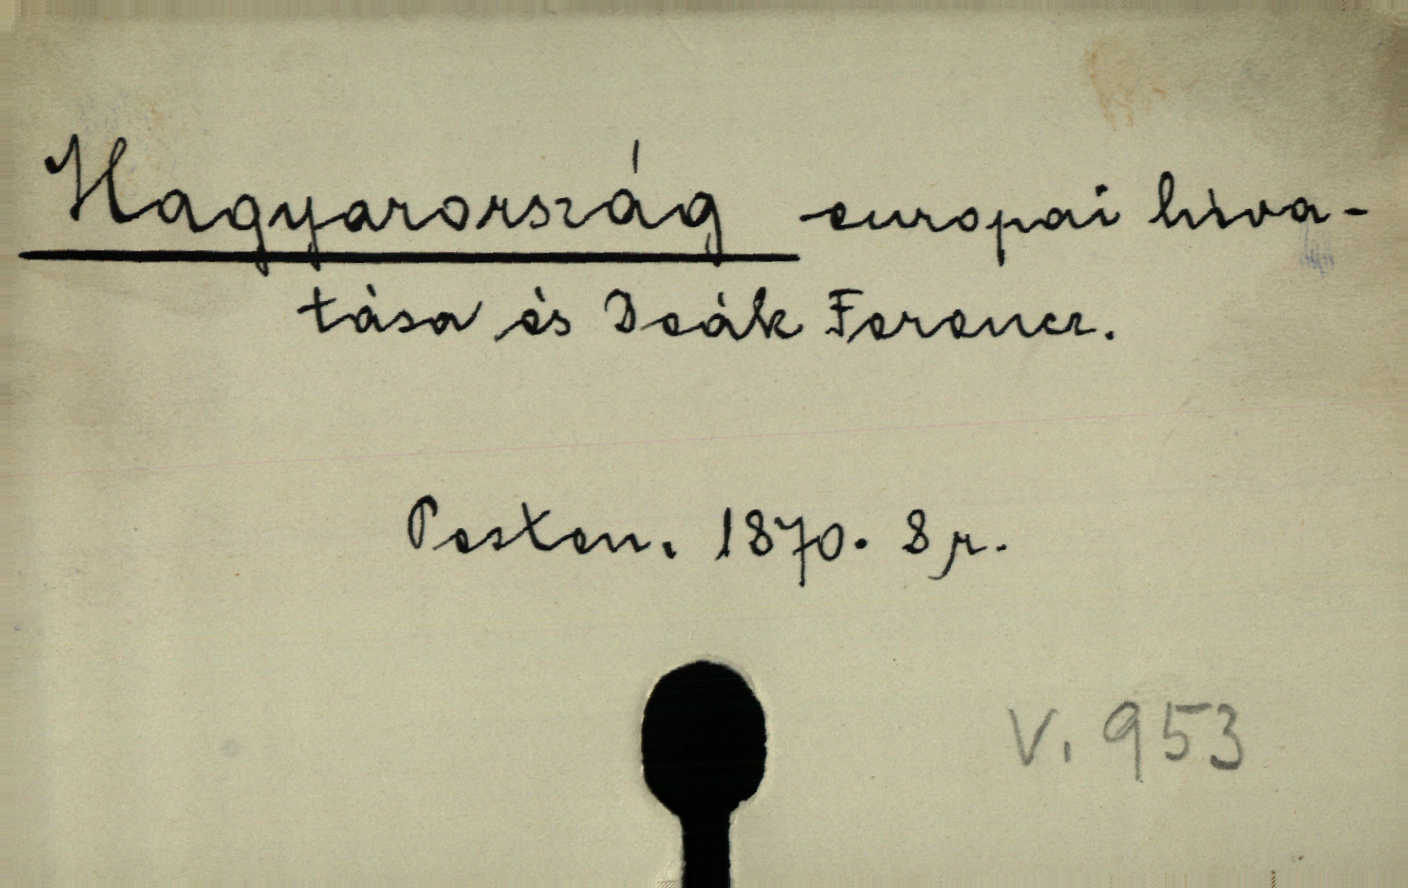 Magyarország europai hiva-
tása és Deák Ferencz.
Pesten. 1870. 8 r.
V. 953